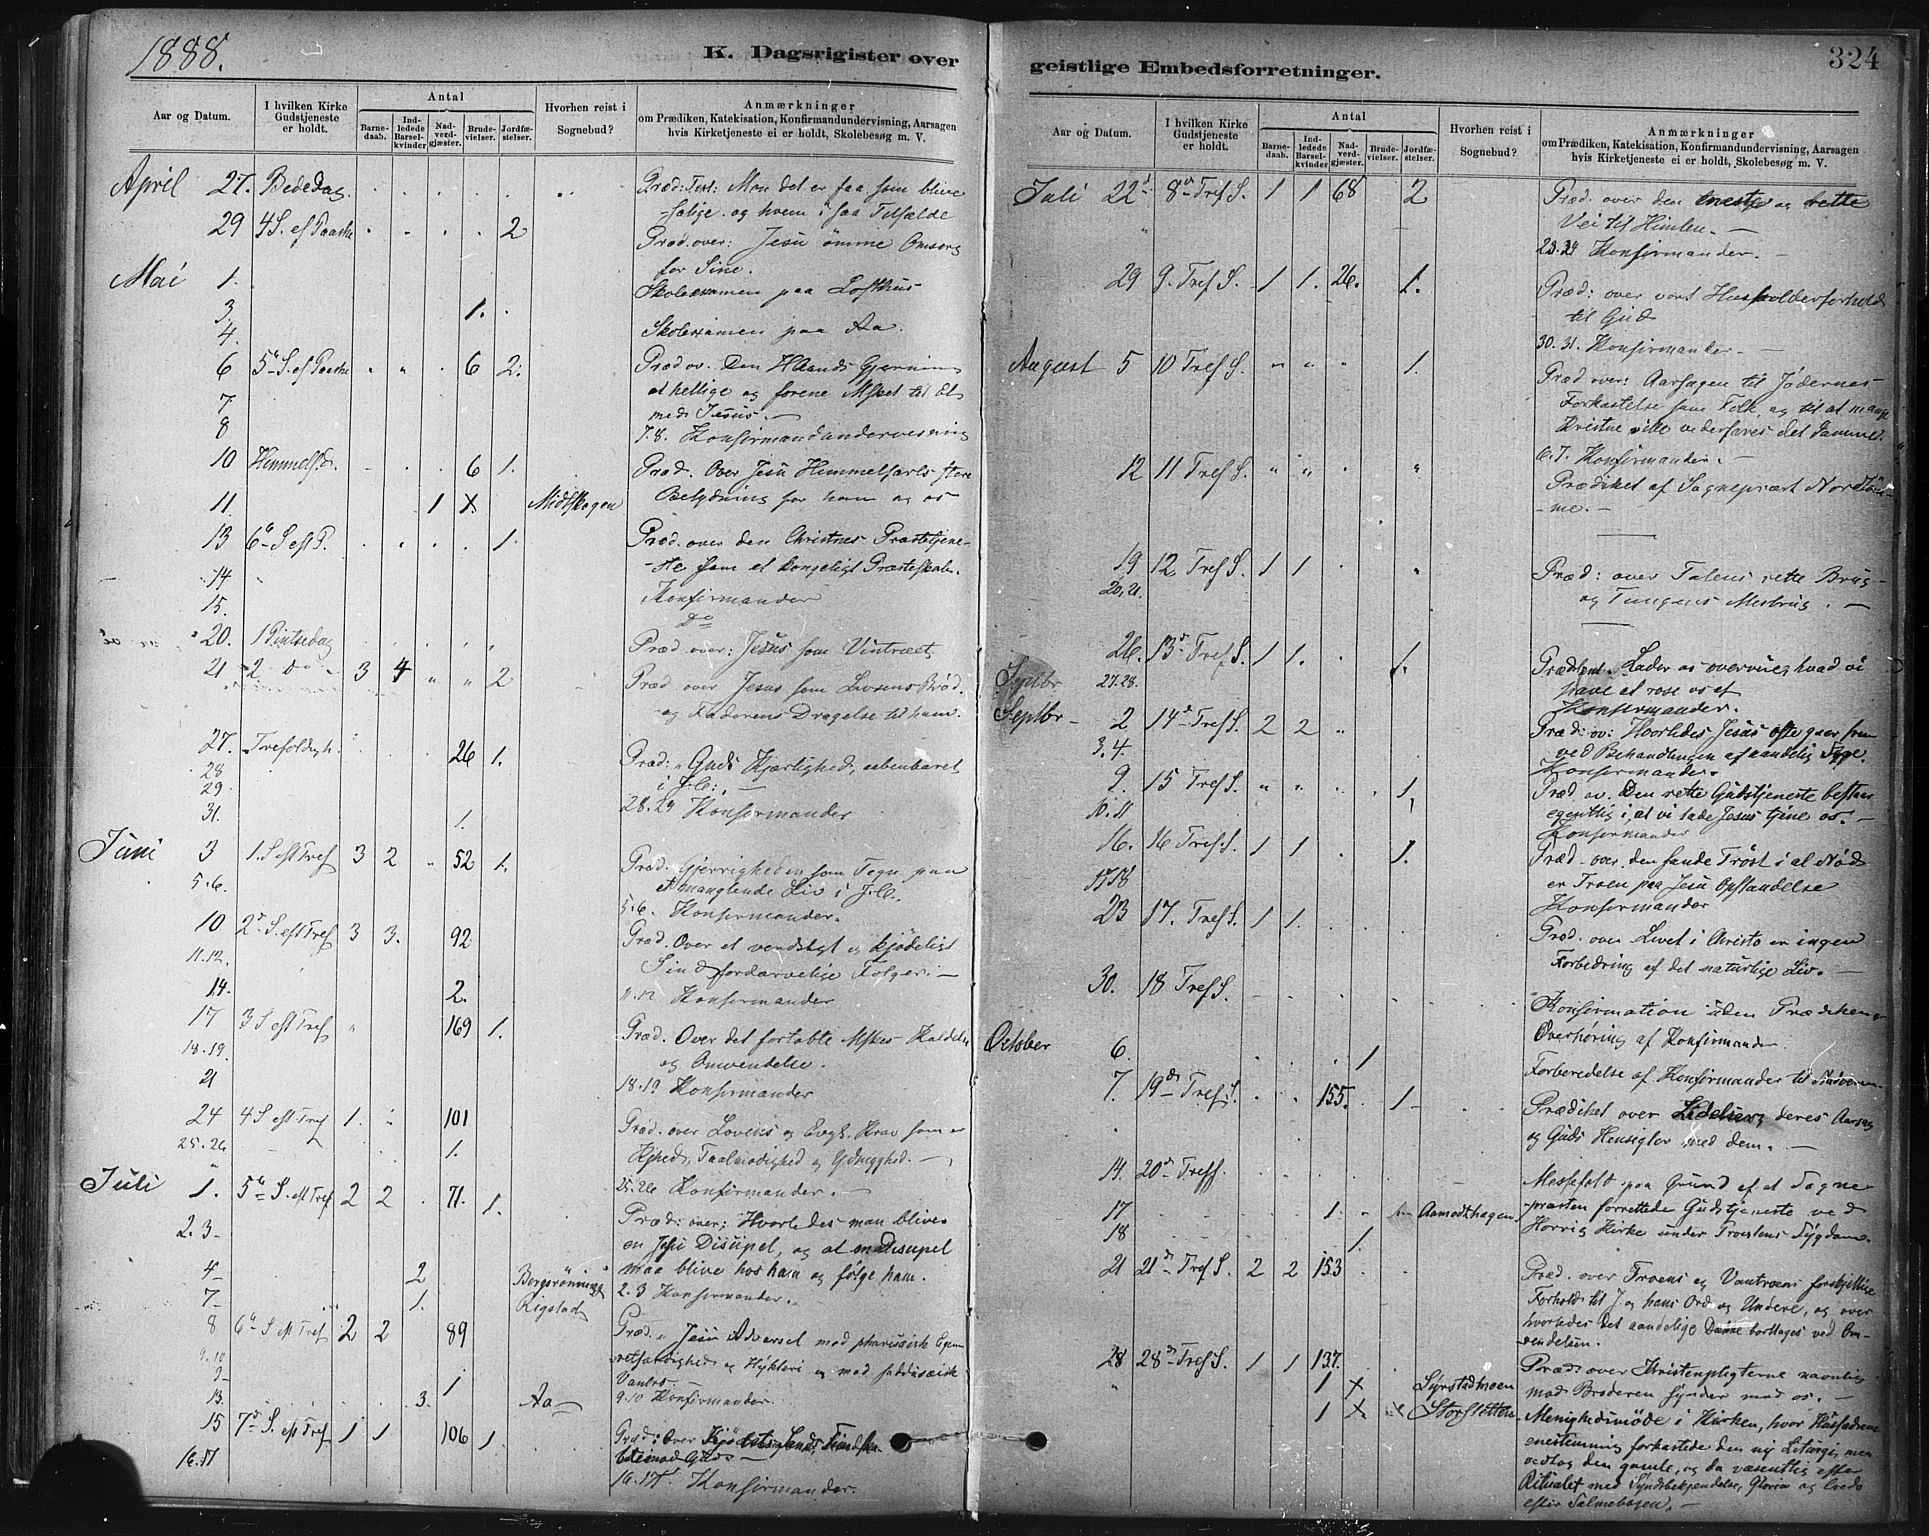 1888.
K. Dagsrigister over
Aar og Datum. I hvilken Kirke Gudstjeneste er holdt. Antal Barnedaab. Indledede Barselkvinder Nadverdgjæster. Brudevielser. Jordfæstelser. Hvorhen reist i Sognebud? Anmærkninger om Prædiken, Katekisation, Konfirmandundervisning, Aarsagen hvis Kirketjeneste ei er holdt, Skolebesøg m. V.
April 27. Bededag Præd: Text: Mon det er faa som blive
salige og hvem i saa Tilfælde
29 4 S. ef Paaske 2 Præd. over: Jesu ömme Omsorg
for Sine.
Mai 1. Skoleexamen paa Lofthus
3. 1.
4. Skoleexamen paa Aa.
6 5te S. ef Paaske 6 2. Præd. ov. Den H Aands Gjerning
at hellige og forene Msket til Et
7 med Jesus. —
8 7.8. Konfirmandundervisning
10 Himmelf.d. 6 1. Præd. Over Jesu Himmelfarts store
Betydning for ham og os
11. 1 X. Midtskogen
13 6te S. eft P. 1. Præd. over den Christnes Præstetjene-
ste som et kongeligt Præsteskab.
14 Konfirmander
15. Do
20. 1 Pintsedag Præd. over: Jesus som Vintræet
21 2 Do 3 4 2 Præd. over Jesus som Livsens Bröd
og Faderens Dragelse til ham.
27. Trefoldigh. 26 1. Præd: Guds Kjærlighed, aabenbaret
i J.C. —
28
29 28.29 Konfirmander
31. 1.
Juni 3 1. S. eft Tref 3 2 52 1. Præd. Gjerrigheden som Tegn paa
et manglende Liv i J.C.
5.6. 5.6. Konfirmander.
10 2d S. eft Tref 3 3. 92 Præd. Over et verdsligt og kjödeligt
Sinds fordærvelige Følger. —
11.12. 11.12 Konfirmander
14. 2.
17 3 S. eft Tref 169 1. Præd. Over det fortabte Mskes Kaldelse
og Omvendelse.
18.19. 18.19 Konfirmander
21
24 4 S. eft Tref 1. 101 Præd. over Lovens og Evgl. Krav som er
Kjhed, Taalmodighed og Ydmyghed. —
25.26 1. 25.26 Konfirmander. —
Juli 1. 5te S. eft Tref 2 2 71. 1. Præd: over: Hvorledes man bliver
en Jesu Discipel, og at en Discipel
2.3 maa blive hos ham og følge ham.
4 2 Borgsrönningen 2.3 Konfirmander.
7 1. Rigstad
8 6te S. eft Tref 2 2 89 Præd. Jesu Advarsel mod pharisæisk Egen-
retfærdighed og Hykleri og mod saddusæisk
Vantro. —
9.10 9.10 Konfirmander.
9 1
13. 3. Aa —
15 7d S. eft Tref 1 1 106 1 Præd: Over
mod Guds —
16.17 16.17. Konfirmander.
geistlige Embedsforretninger.
324
Aar og Datum. I hvilken Kirke Gudstjeneste er holdt. Antal Barnedaab. Indledede Barselkvinder Nadverdgjæster. Brudevielser. Jordfæstelser. Hvorhen reist i Sognebud? Anmærkninger om Prædiken, Katekisation, Konfirmandundervisning, Aarsagen hvis Kirketjeneste ei er holdt, Skolebesøg m. V.
Juli 22 8de Tref S. 1 1 68 2 Præd. over den eneste og rette
Vei til Himlen. —
23.24 Konfirmander. —
29 9. Tref S. 1 1. 26. 1. Præd: over vort Husholderforhold
til Gud
30.31. Konfirmander. —
August 5 10 Tref S. 1. Præd over: Aarsagen til Jödernes
Forkastelse som Folk, og til at mange
Kristne ville vederfares det samme.
6.7. Konfirmander. —
12 11 Tref S. Prædiket af Sognepræst Nordtöm-
me. —
19 12 Tref S. 1 1 Præd: over Talens rette Brug
20,21. og Tungens Misbrug. —
26. 13d Tref S. 1 1. 1. Præd. Lader os overveie, hvad vi
Septbr 27.28. have at rose os af
Konfirmander.
Septbr 2 14d Tref S. 2 2 Præd: ov: Hvorledes Jesus ofte gaar frem
ved Behandlingen af aandelig Syge.
3.4. Konfirmander.
9. 15 Tref S. 1 Præd ov. Den rette Gudstjeneste bestaar
egentlig i, at vi lade Jesus tjene os. —
10.11 Konfirmander
16. 16 Tref S. 1 1 1. Præd. over den sande Tröst i al Nöd
er Troen paa Jesu Opstandelse
17.18 Konfirmander
23 17. Tref S. 1 1. Præd. over Livet i Christo er ingen
Forbedring af det naturlige Liv. —
30. 18 Tref S. Konfirmation uden Prædiken
Overhöring af Konfirmander.
October 6. 1 Forberedelse af Konfirmander til Nadveren
7. 19de Tref S. 155. 1 Prædiket over Lidelser, deres Aarsag
og Guds Hensigter med dem. —
14. 20d Tref S. Messefald paa Grund af at Sogne-
17 1. 1. Aamodthagen præsten forrettede Gudstjeneste ved
18 1. Horrig Kirke under Provstens Sygdom.
21 21d Tref S. 2 2 153 Præd. over Troens og Vantroens forskjellige
Forhold til J. og hans Ord og Undere, og over
hvorledes det aandelige borttages ved Om-
vendelsen.
28 28de Tref S. 1 1 137. Præd. over Kristenpligterne navnlig
1 X Syrstadmoen mod Broderen synder mod os. —
1 X Storsletten Menighedsmöde i Kirken, hvor Husfædrene
enstemmig forkastede den ny Liturgi, men
vedtog den gamle, og da væsentlig efter
Ritualet med Syndsbekjendelse, Gloria og Credo
efter Salmebogen. —